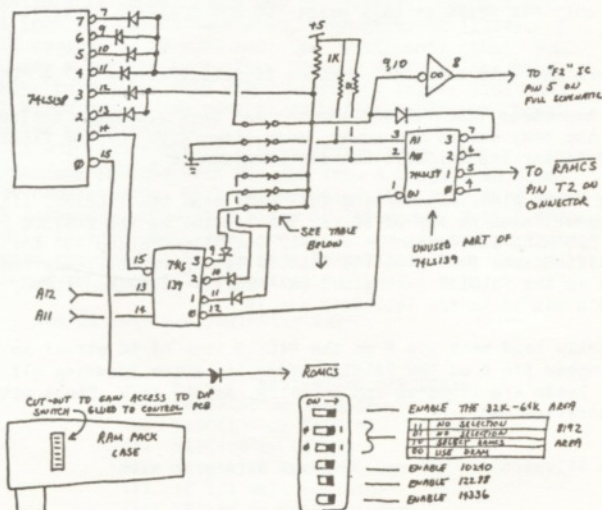 7
6
5
4
3
2
1
0
7
9
10
11
12
13
14
15
74LS138
+5
1K
9,10
8
TO "F2" IC
PIN 5 ON
FULL SCHEMATIC
3
2
1
A1
A0
EN
74LS139
3
2
1
0
7
6
5
4
TO RAMCS
PIN T2 ON
CONNECTOR
UNUSED PART OF
74LS139
SEE TABLE
BELOW
15
13
14
74LS
139
3
2
1
0
9
10
11
12
A12
A11
ROMCS
CUT-OUT TO GAIN ACCESS TO DIP
SWITCH GLUED TO CONTROL PCB
RAM PACK
CASE
ON →
0 1
0 1
ENABLE THE 32K-64K AREA
11 NO SELECTION
01 NO SELECTION
10 SELECT RAMCS
00 USE DRAM
8192
AREA
ENABLE 10240
ENABLE 12288
ENABLE 14336